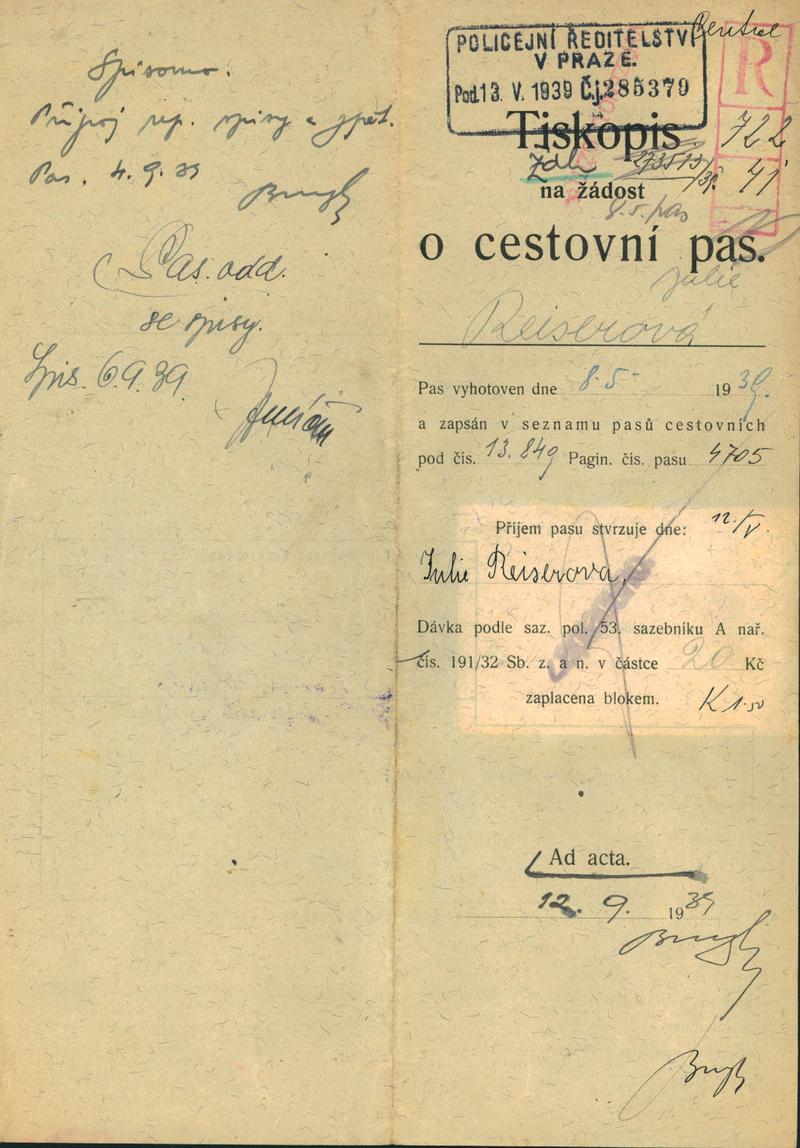 Spisovna.
Připoj rep. spisy a zpět.
Pas. 4. 9. 39
Pas. odd.
se spisy.
Spis. 6.9.39.
Central
POLICEJNÍ ŘEDITELSTVÍ
V PRAZE.
Pod. 13. V. 1939 Č.j. 285379
R
722
41
Tiskopis
na žádost
8.5. pas
o cestovní pas.
Julie
Reiserová
Pas vyhotoven dne 8.5 1939.
a zapsán v seznamu pasů cestovních
pod čís. 13.849 Pagin. čís. pasu 4705
Příjem pasu stvrzuje dne: 12./V.
Julie Reiserova,
Dávka podle saz. pol. 53. sazebníku A nař.
čís. 191/32 Sb. z. a n. v částce 20 Kč
zaplacena blokem. K 1.50
Ad acta.
12. 9. 1939